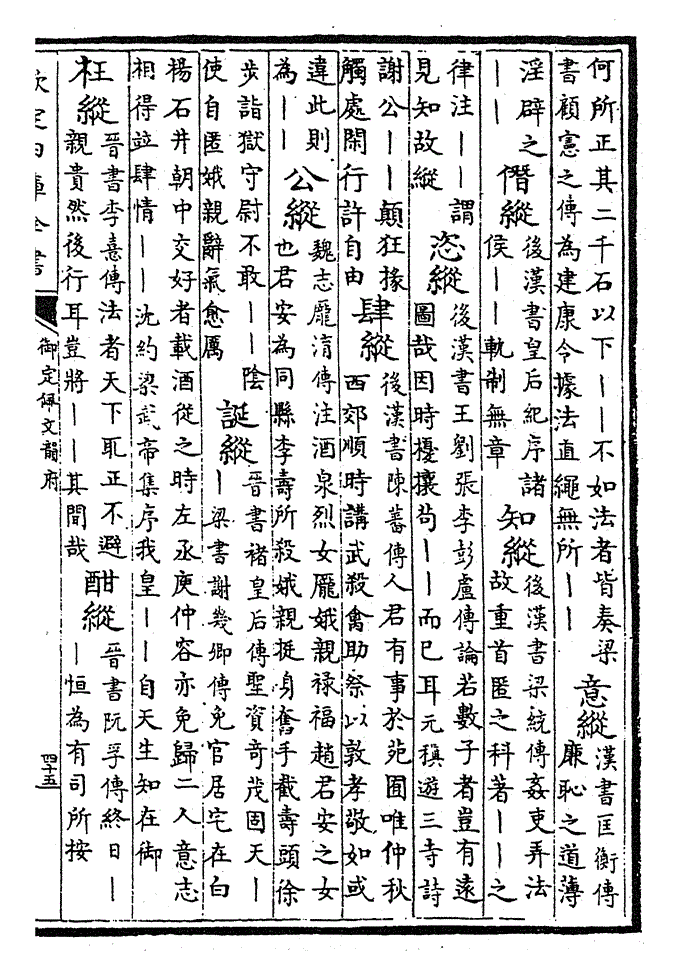 何所正其二千石以下――不如法者皆奏梁
書顧憲之傳為建康令據法直繩無所――
意縱
漢書匡衡傳
廉恥之道薄
淫辟之
――
僭縱
後漢書皇后紀序諸
侯――軌制無章
知縱
後漢書梁統傳姦吏弄法
故重首匿之科著――之
律注――謂
見知故縱
恣縱
後漢書王劉張李彭盧傳論若數子者豈有遠
圖哉因時擾攘茍――而已耳元稹遊三寺詩
謝公――顛狂掾
觸處閑行許自由
肆縱
後漢書陳蕃傳人君有事於苑囿唯仲秋
西郊順時講武殺禽助祭以敦孝敬如或
違此則
為――
公縱
魏志龐淯傳注酒泉烈女龐娥親禄福趙君安之女
也君安為同縣李壽所殺娥親挺身奮手截壽頭徐
步詣獄守尉不敢――陰
使自匿娥親辭氣愈厲
誕縱
晉書褚皇后傳聖資奇茂固天―
―梁書謝幾卿傳免官居宅在白
楊石井朝中交好者載酒從之時左丞庾仲容亦免歸二人意志
相得竝肆情――沈約梁武帝集序我皇――自天生知在御
枉縱
晉書李憙傳法者天下取正不避
親貴然後行耳豈將――其間哉
酣縱
晉書阮孚傳終日―
―恒為有司所按
欽定四庫全書
御定佩文韻府
四十五